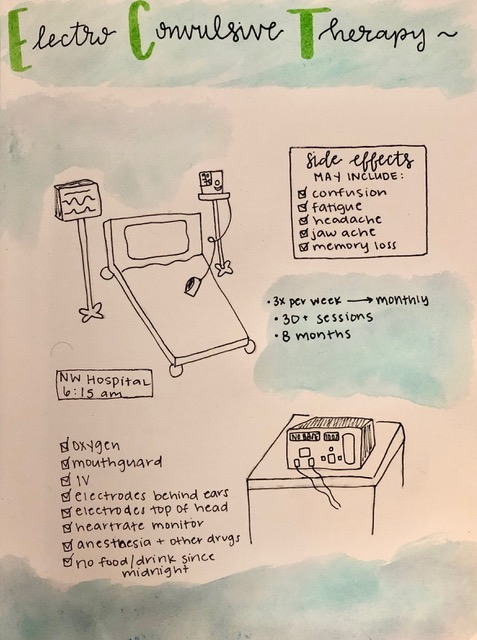 Electro Convulsive Therapy ~
side effects
MAY INCLUDE:
confusion
fatigue
headache
jaw ache
memory loss
• 3x per week → monthly
• 30+ sessions
• 8 months
NW Hospital
6:15 am
oxygen
mouthguard
IV
electrodes behind ears
electrodes top of head
heartrate monitor
anesthesia + other drugs
no food/drink since
midnight